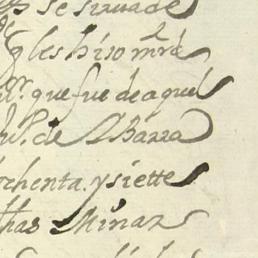 se sirva de
q les hiso mrd
que fue de aquel
de Ybarra
ochenta y siette
Minas